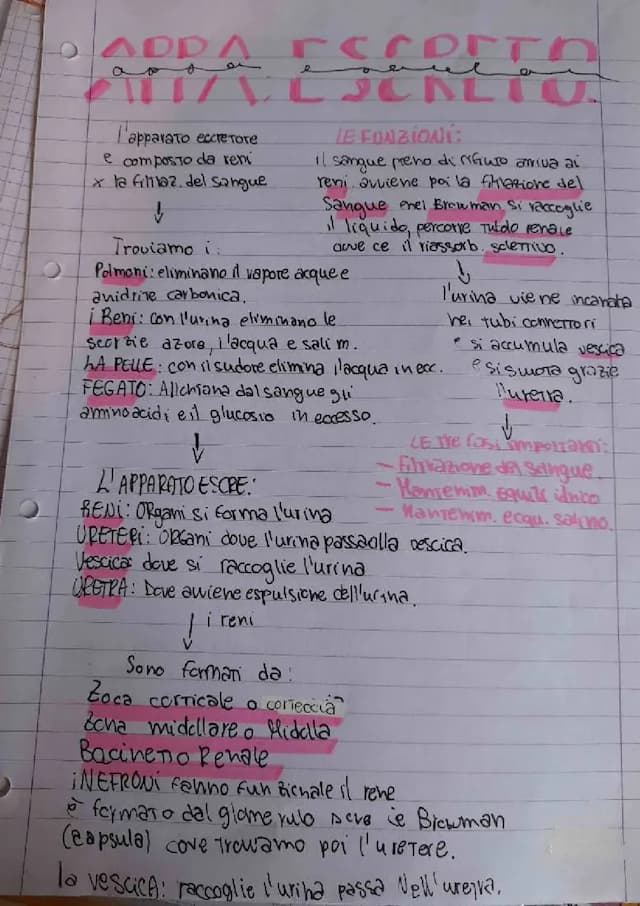 APPA. ESCRETO.
l'apparato eccretore
e composto da reni
x la filtraz. del sangue
Troviamo i:
Polmoni: eliminano il vapore acqueo e
anidrite carbonica.
i Reni: con l'urina eliminano le
scorzie azoto, l'acqua e salim.
LA PELLE: con il sudore elimina l'acqua in ecc.
FEGATO: All'chiana dal sangue gli
aminoacidi e il glucosio in eccesso.
L'APPARATO ESCRE:
RENI: Organi si forma l'urina
URETERI: ORGANI dove l'urina passa alla vescica.
Vescica: dove si raccoglie l'urina
URETRA: Dove avviene espulsione dell'urina.
i reni
Sono formati da:
Zoca corticale o corteccia
Zona midollare o Midolla
Bacineto Renale
i NEFRONI fanno funzionale il rene
è formato dal glomerulo Browman
(capsula) cove troviamo poi l'uretere.
la VESCICA: raccoglie l'urina passa Nell'uretra.
LE FUNZIONI:
il sangue pieno di rifiuto arriva ai
reni avviene poi la filtrazione del
Sangue e nel Browman si raccoglie
il liquido, percorre tubolo renale
ove ce il riassorb. seletivo.
l'urina viene incanata
nei tubi connettori
e si accumula vescica
e si svuota grazie
l'uretra.
LE TRE COSE importanti:
- Filtrazione del sangue
- Mantenim. Equili idrico
- Mantenim. ecqu. salino.